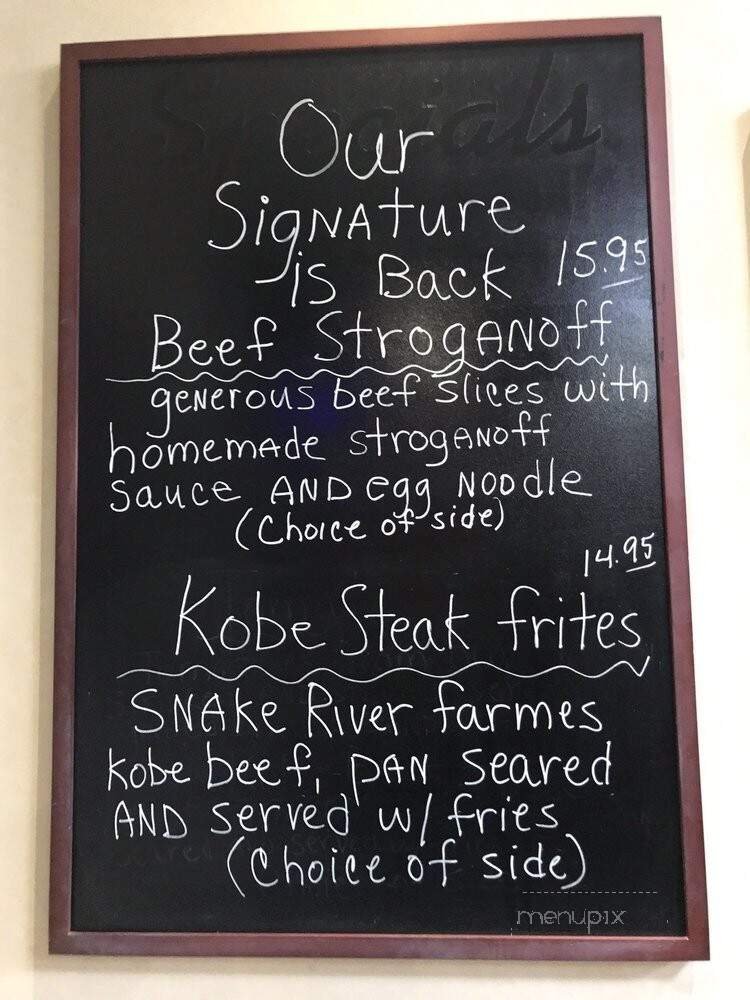 Specials
Our
Signature
is Back 15.95
Beef Stroganoff
generous beef slices with
homemade stroganoff
sauce AND egg Noodle
(Choice of side)
14.95
Kobe Steak frites
SNAke River farmes
kobe beef, pAN seared
AND served w/ fries
(Choice of side)
menupix